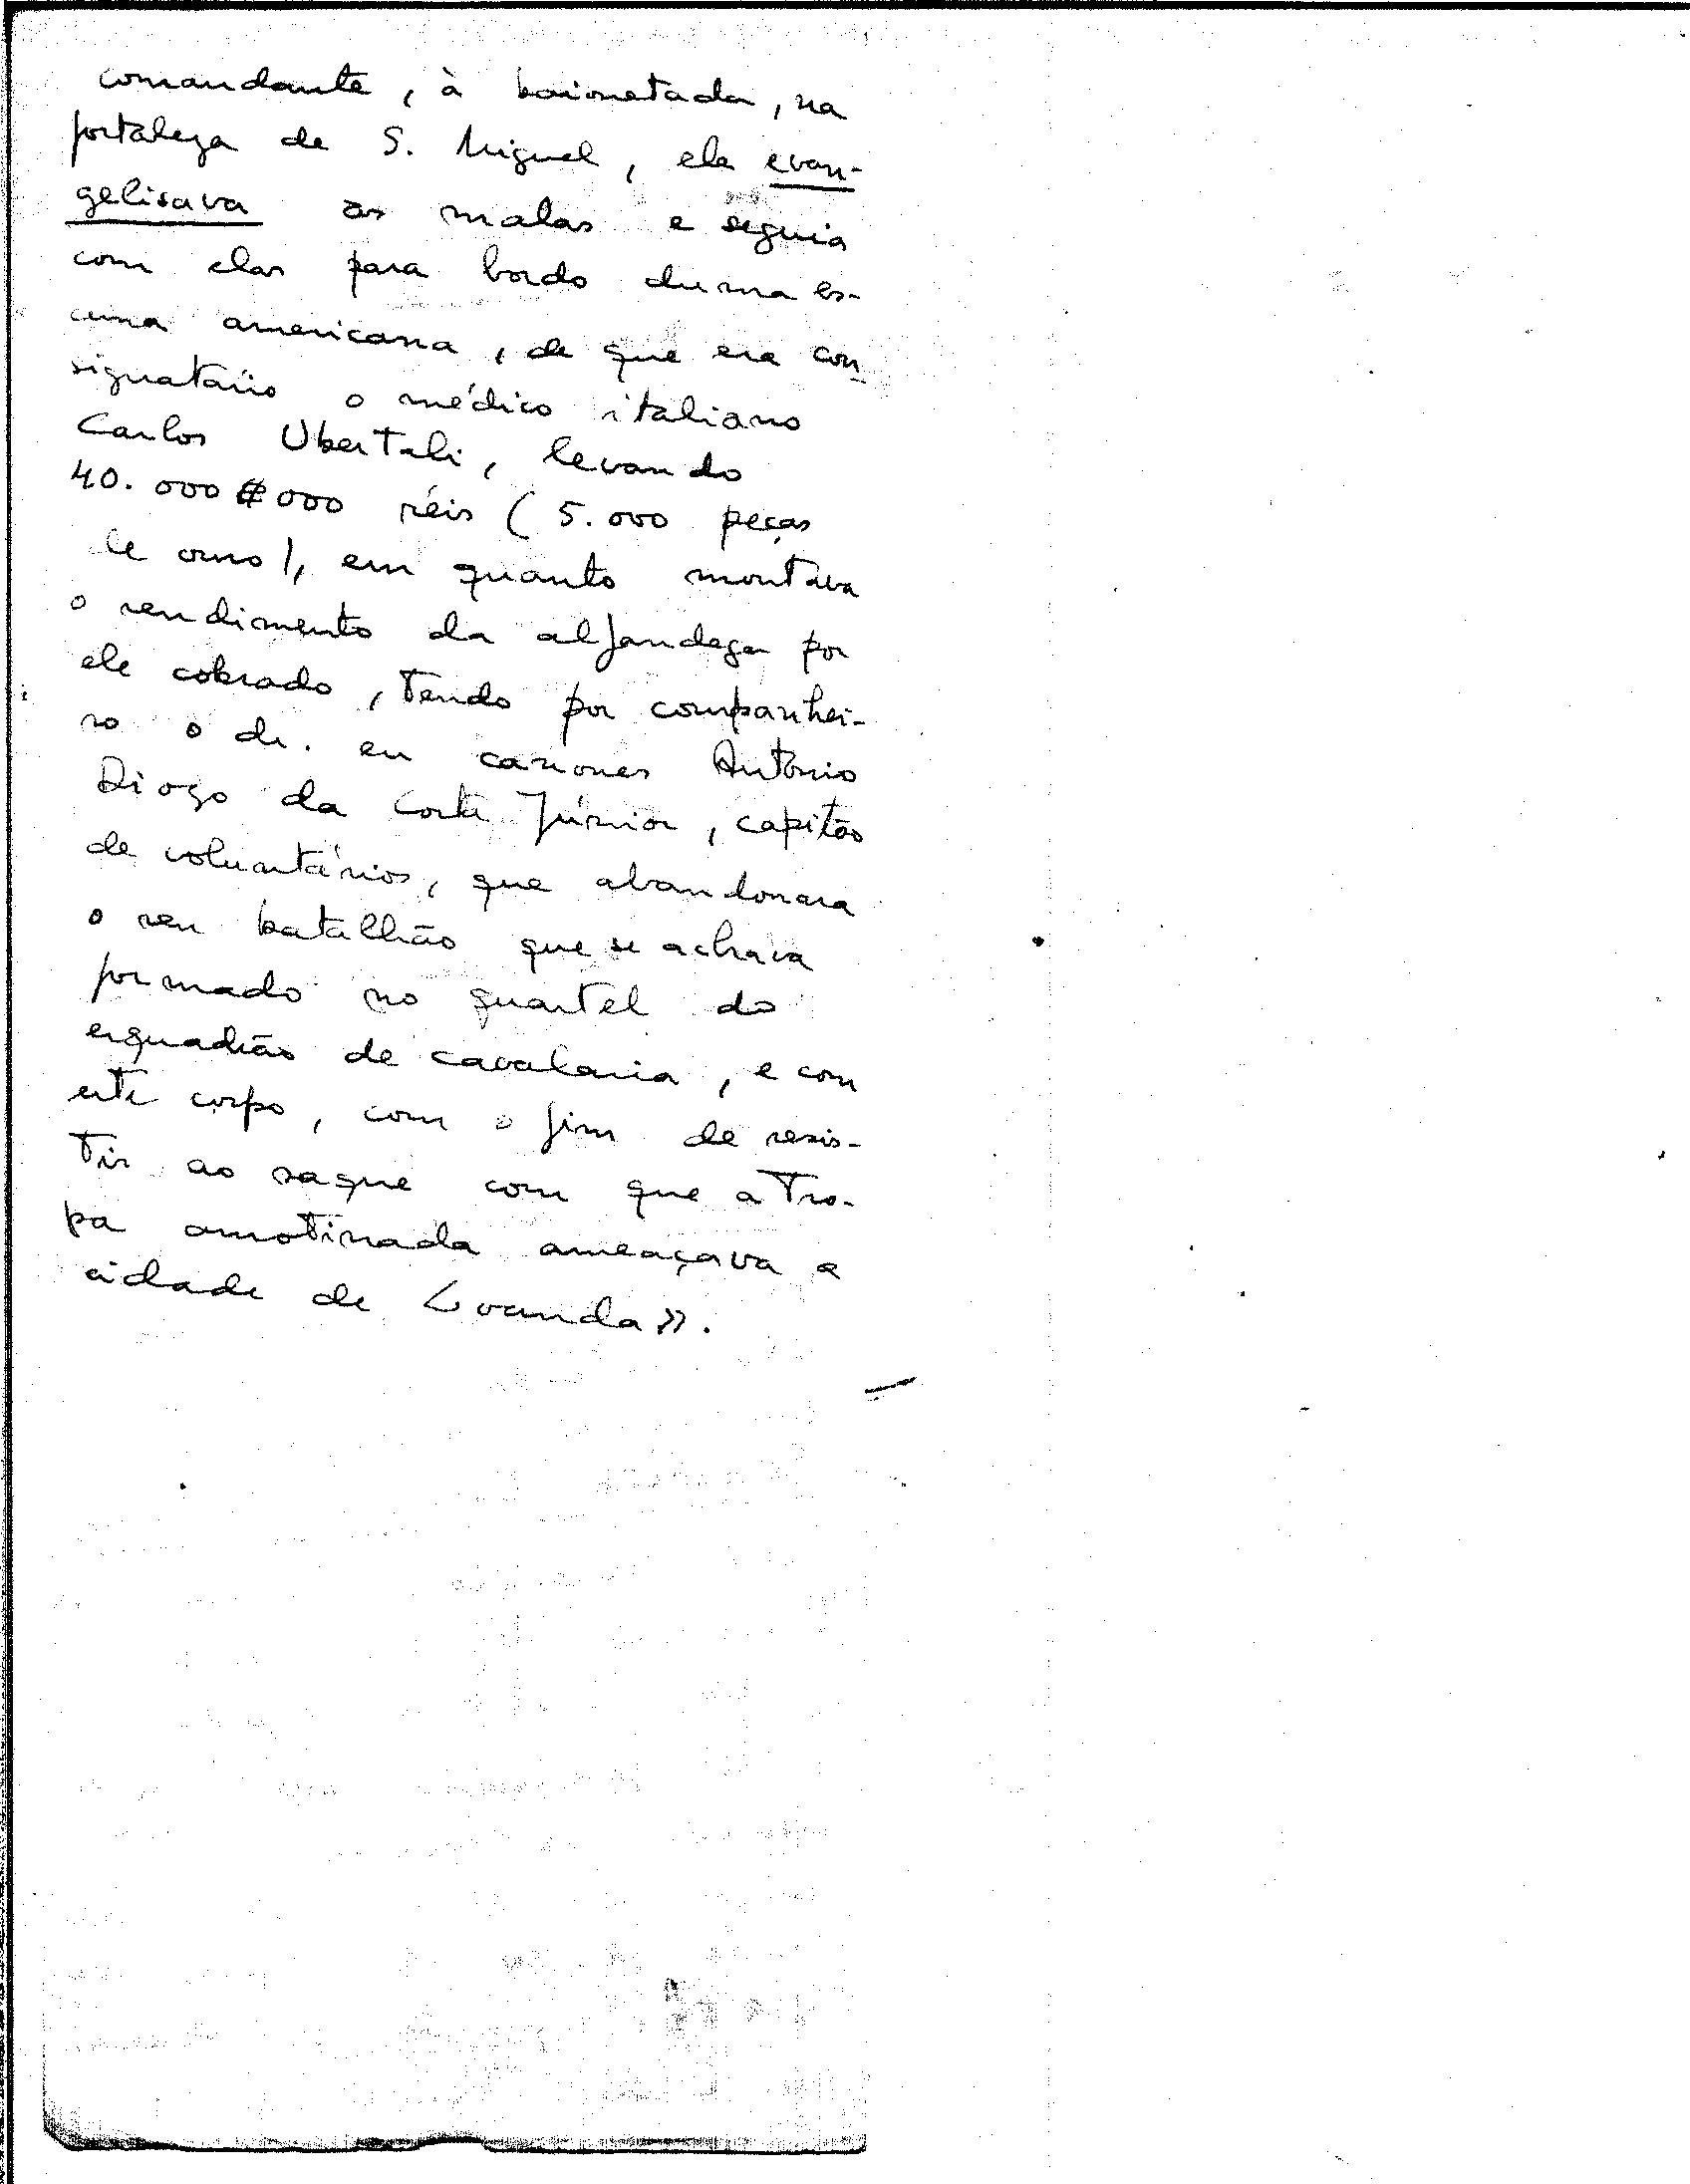 comandante, à baionetada, na
fortaleza de S. Miguel, ele evan-
gelisava as malas e seguia
com elas para bordo duma es-
cuna americana, de que era con-
signatário o médico italiano
Carlos Ubertali, levando
40.000$000 réis (5.000 peças
de ouro), em quanto montava
o rendimento da alfandega por
ele cobrado, tendo por companhei-
ro o dr. en canones António
Diogo da Corte Júnior, capitão
de voluntários, que abandonara
o seu batalhão que se achava
formado no quartel do
esquadrão de cavalaria, e com
este corpo, com o fim de resis-
tir ao saque com que a tro-
pa amotinada ameaçava a
cidade de Loanda».